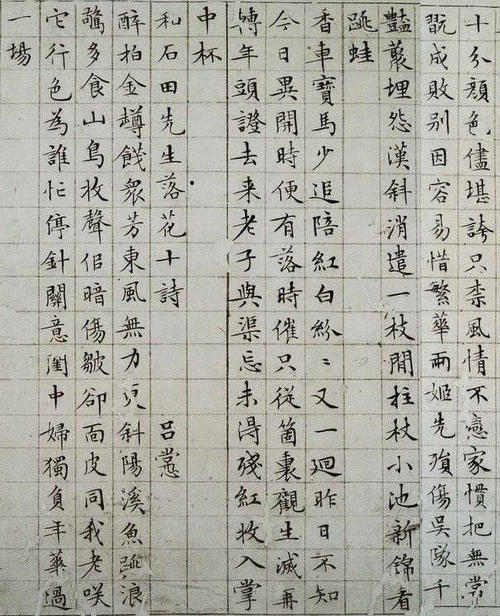 十分顏色儘堪誇只柰風情不戀家慣把無常
翫成敗別因容易惜繁華兩姬先殞傷吳隊千
豔叢埋怨漢斜消遣一枝閒拄杖小池新錦看
跳蛙
香車寶馬少追陪紅白紛〻又一廻昨日不知
今日異開時便有落時催只從箇裏觀生滅再
轉年頭證去来老子與渠忘未得殘紅收入掌
中杯
和石田先生落花十詩 呂㦂
醉拍金罇餞衆芳東風無力更斜陽溪魚跳浪
驚多食山鳥收聲佀暗傷皺卻面皮同我老咲
它行色為誰忙停針關意閨中婦獨負年華過
一場